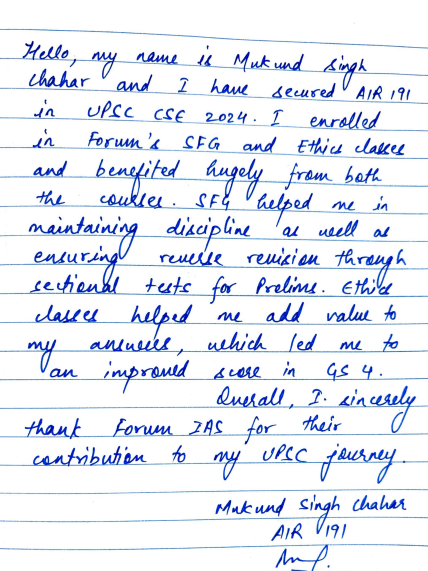 Hello, my name is Mukund Singh
Chahar and I have secured AIR 191
in UPSC CSE 2024. I enrolled
in Forum's SFG and Ethics classes
and benefited hugely from both
the courses. SFG helped me in
maintaining discipline as well as
ensuring reverse revision through
sectional tests for Prelims. Ethics
classes helped me add value to
my answers, which led me to
an improved score in GS 4.
Overall, I. sincerely
thank Forum IAS for their
contribution to my UPSC journey.
Mukund Singh Chahar
AIR 191